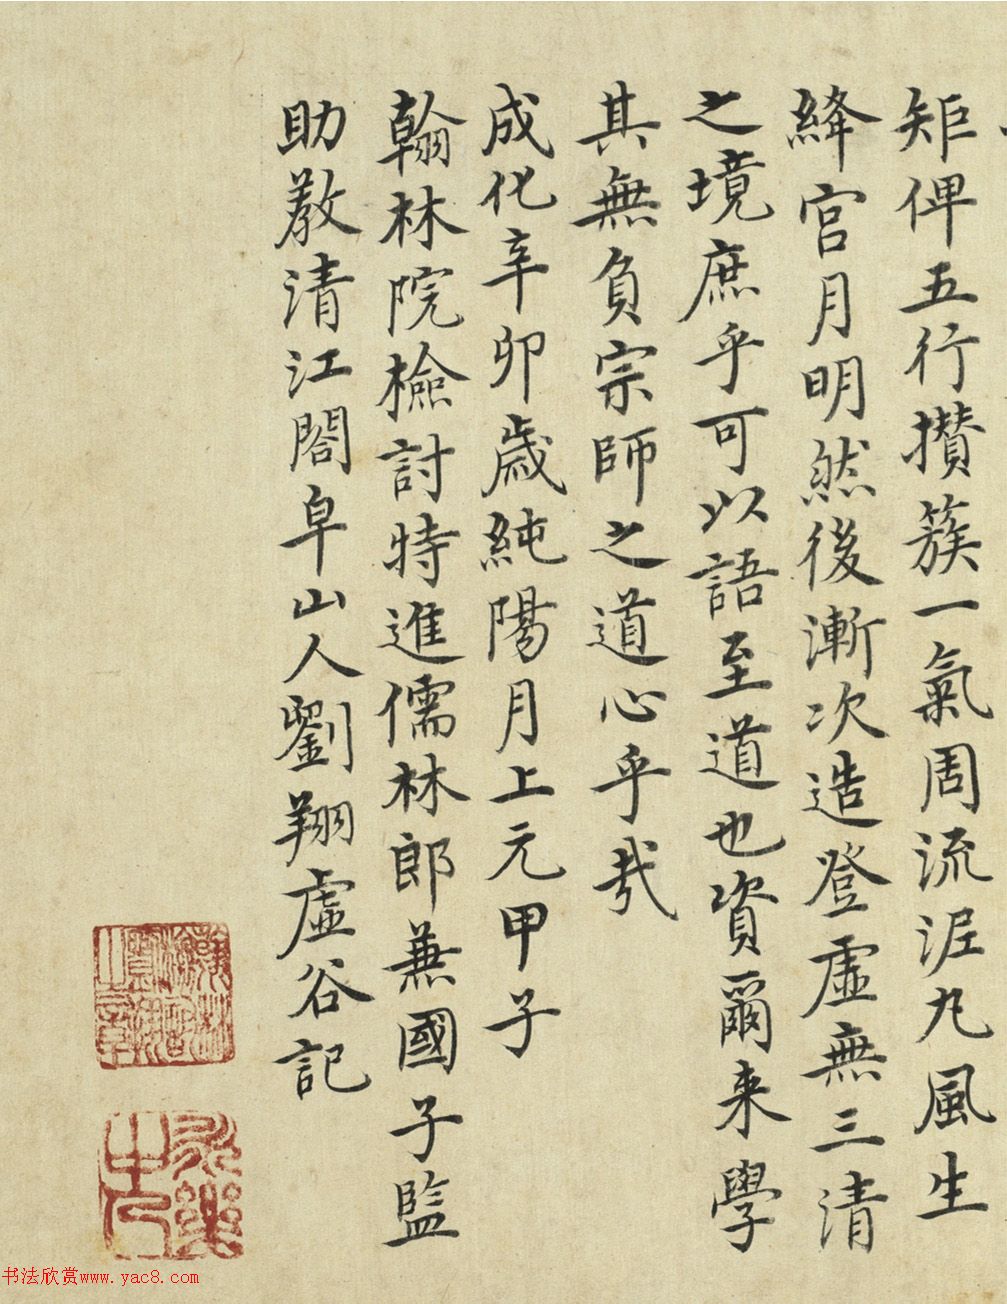 矩俾五行攢簇一氣周流泥丸風生
絳宮月明然後漸次造登虛無三清
之境庶乎可以語至道也資爾来學
其無負宗師之道心乎哉
成化辛卯歲純陽月上元甲子
翰林院檢討特進儒林郎兼國子監
助教清江閤皁山人劉翔虛谷記
书法欣赏www.yac8.com